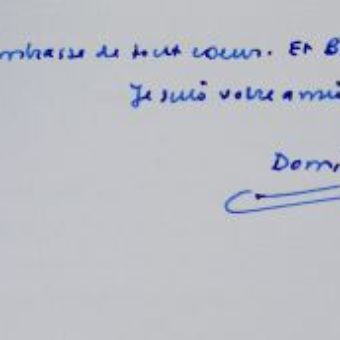 mbrasse de tout coeur. Et B
Je suis votre amie
Dom,